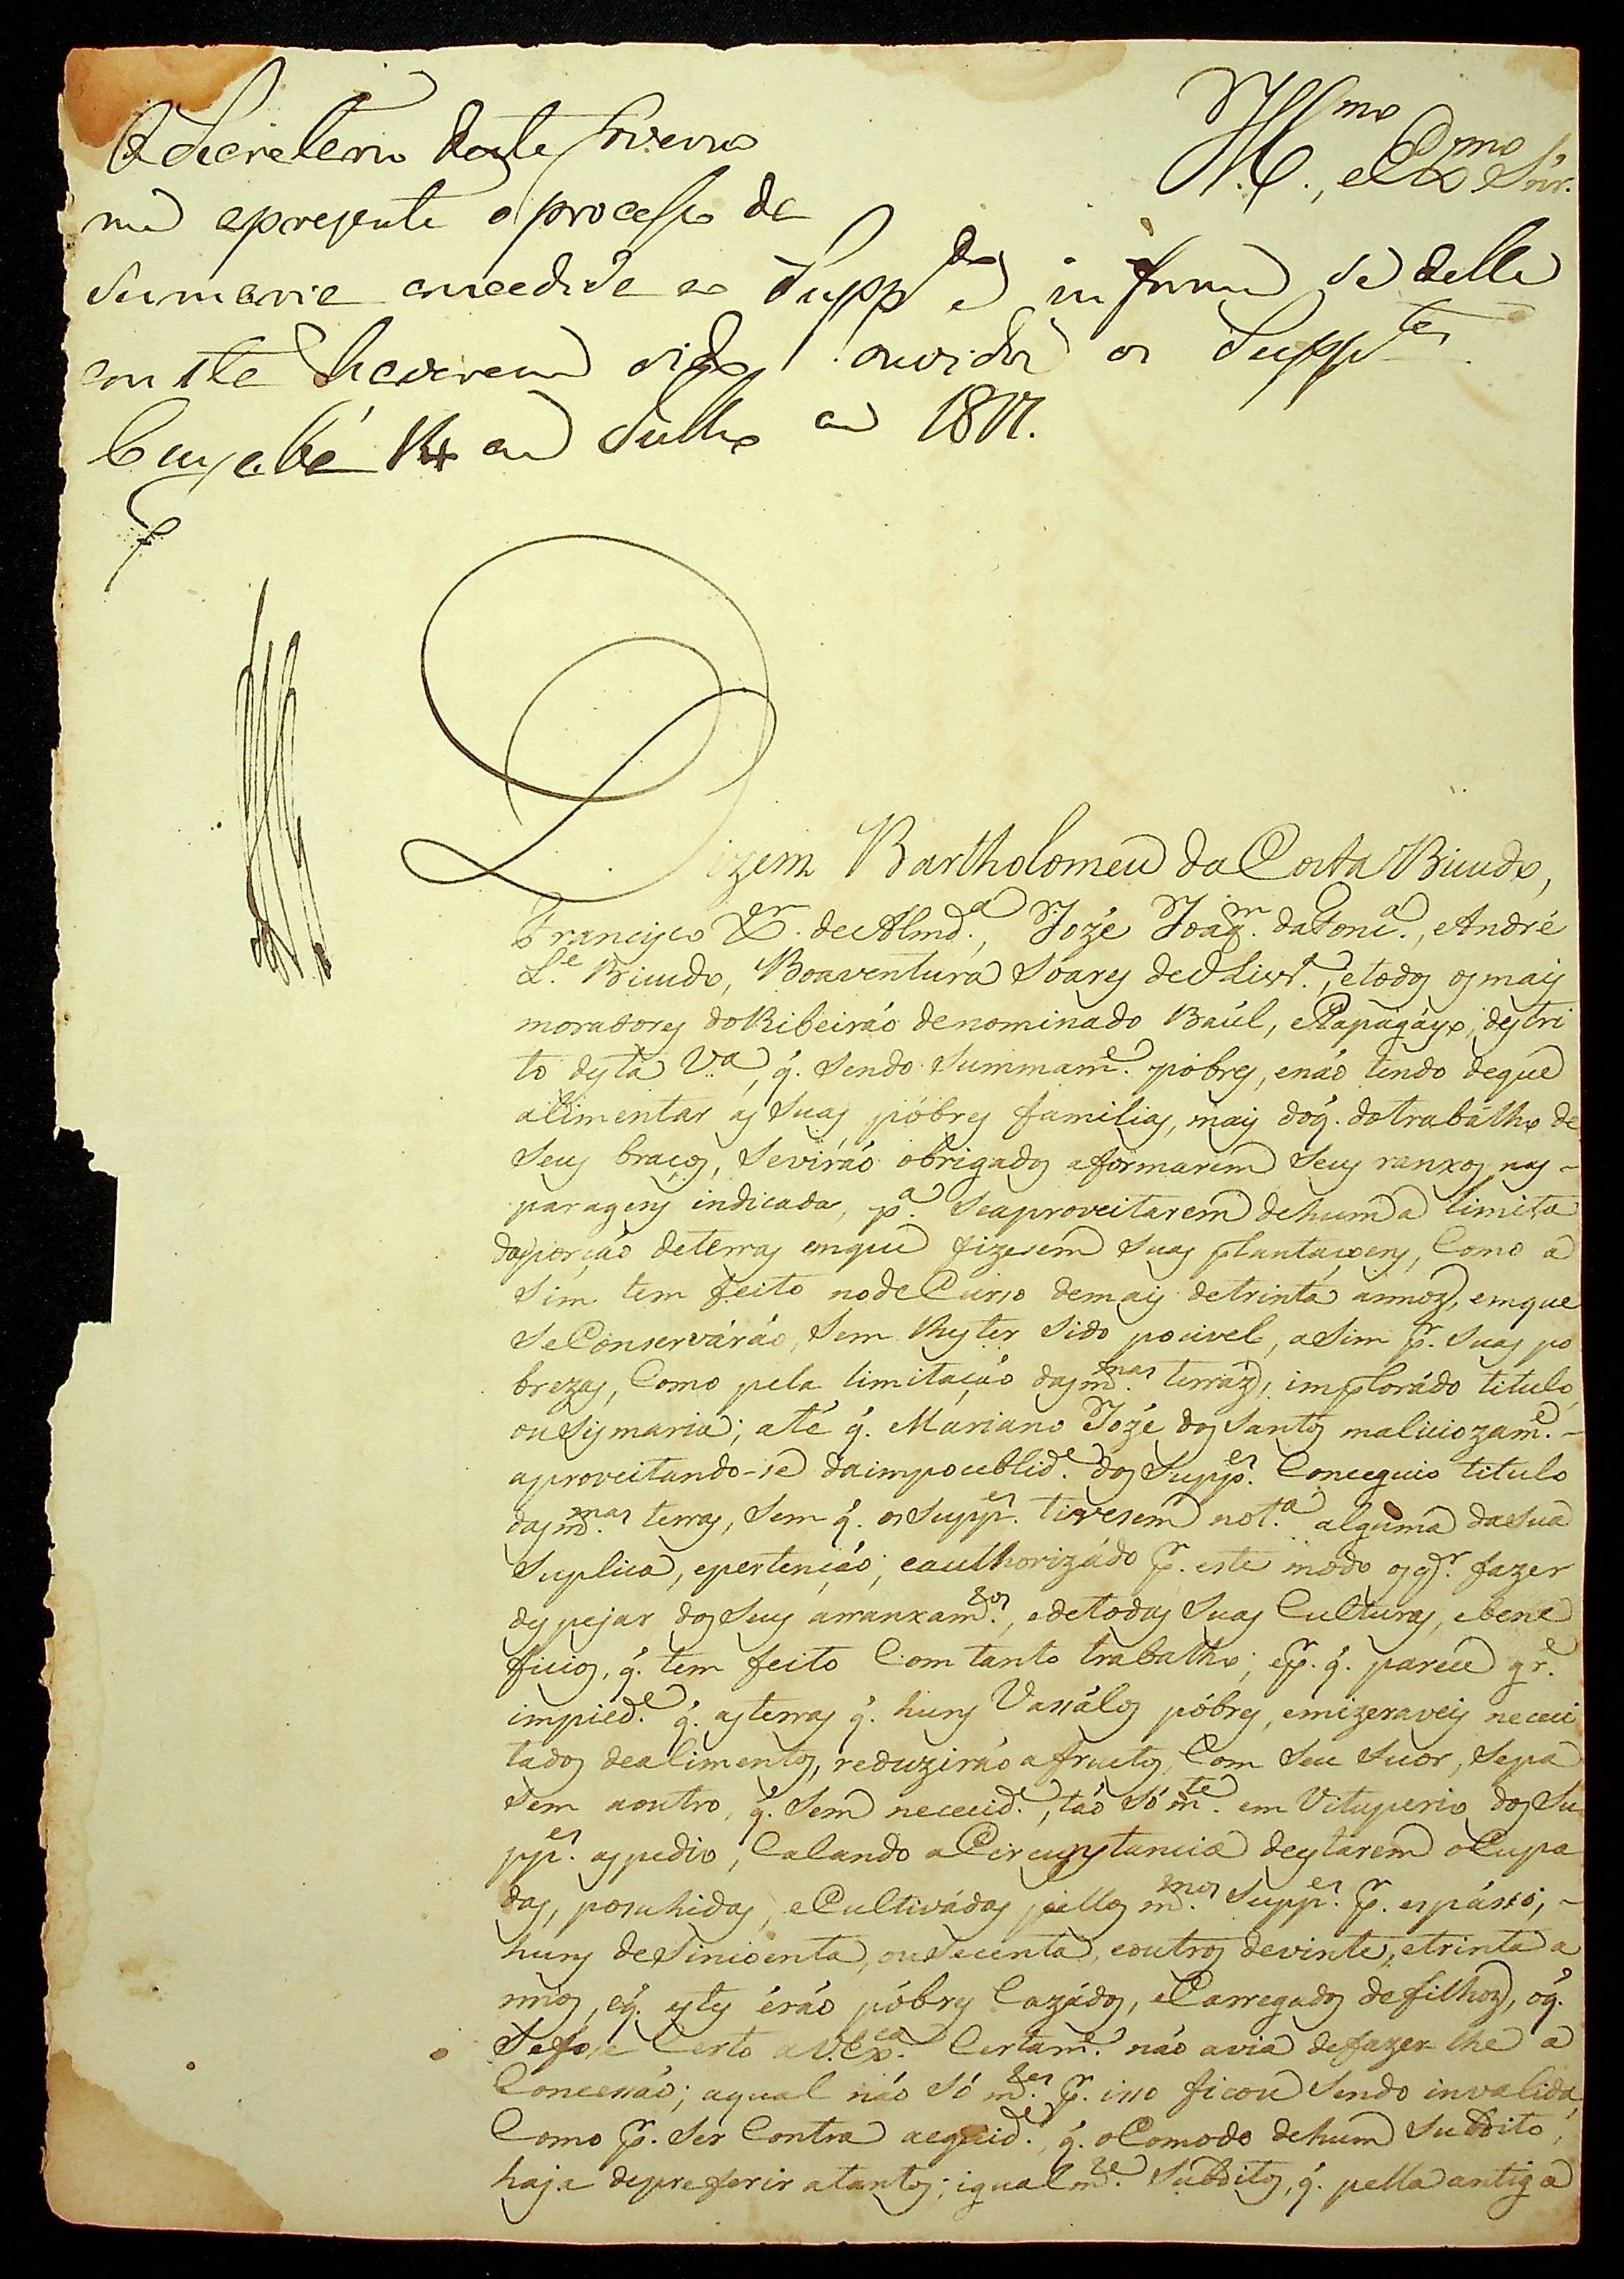 A Secretaria deste Governo
me aprezente o processo da
Ill.mo, e Ex.mo Snr.
Sismaria concedida ao Supp.do e informe se delle
conste haverem sido ouvidos os Supp.tes
Cuyabá 14 de Julho de 1817.
Dizem Bartholomeu da Costa Biudo,
Francisco X.er de Almd.a, Jozé Joaq.m da Fonc.a, André
L.e Biudo, Boaventura Soares de Olivr.a, e todos os mais
moradores do Ribeiráo denominado Baúl, e Papagáyo, destri
to desta V.a, q́. sendo summam.e póbres, e náo tendo de que
alimentar as suas póbres familias, mais do q́. do trabálho de
seus braços, se viráo obrigados a formarem seus ranxos nas-
paragens indicada, p.a se aproveitarem de huma limita
da porçáo de terras em que fizesem suas plantaçoens, Como a
sim tem feito no deCurso de mais de trinta annoz, em que
se Conserváráo, sem lhes ter sido pocivel, asim p.r suas po
brezas, Como pela limitaçáo das m.mas terraz, implorádo titulo
ou Sismaria; até q́. Mariano Jozé dos Santos maliciozam.e-
aproveitando-se da impocebilid.e dos Supp.es Conceguio titulo
das m.mas terras, sem q́. os Supp.es tivesem not.a alguma da sua
suplica, e pertençáo; e authorizádo p.r este modo os q.r fazer
despejar dos seus arranxam.tos, e de todas suas Culturas, e bene
ficios, q́. tem feito Com tanto trabalho; e p.r q́. parece gr.e
impied.e q́. as terras q́. huns Vassálos póbres, e mizeraveis nececi
tados de alimentos, reduziráo a fructos Com seu suor, se pa
sem a outro, q́. sem nececid.e, táo só m.te em Vituperio dos Su
pp.es as pedio, Calando a Circunstancia de estarem oCupa
das, possuhidas, e Cultivádas pellos m.mos Supp.es p.r espásso,-
huns de sincoenta, ou secenta, e outros de vinte, e trinta a
nnos, e q́. estes éráo póbres Cazádos, e Carregados de filhoz, o q́.
se fose Certo a V. Ex.ca Certam.e náo avia de fazer-lhe a
Concessáo; a qual náo só m.tes p.r isso ficou sendo invalida,
Como p.r ser Contra a equid.e, q́. o Comodo de hum subdito,
haja de preferir a tantos; igualm.te subditos, q́. pella antiga